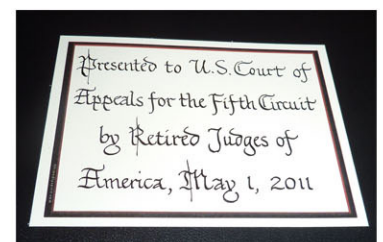 Presented to U.S. Court of
Appeals for the Fifth Circuit
by Retired Judges of
America, May 1, 2011